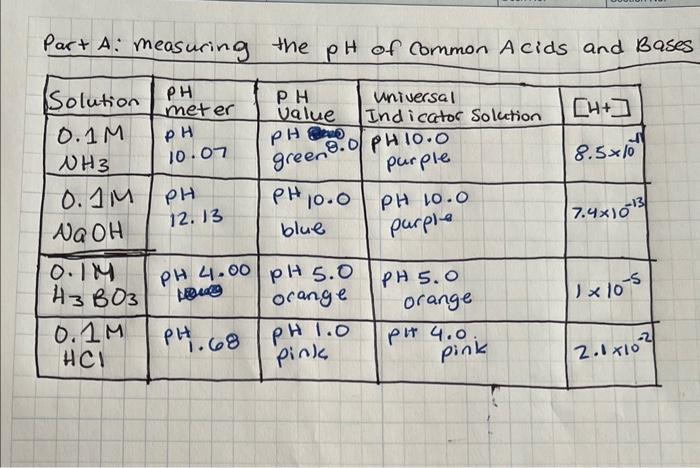 Part A: measuring the pH of Common Acids and Bases
Solution | pH meter | pH Value | Universal Indicator Solution | [H+]
0.1M NH3 | pH 10.07 | pH 8.0 green | pH 10.0 purple | 8.5x10^-11
0.1M NaOH | pH 12.13 | pH 10.0 blue | pH 10.0 purple | 7.4x10^-13
0.1M H3BO3 | pH 4.00 | pH 5.0 orange | pH 5.0 orange | 1x10^-5
0.1M HCl | pH 1.68 | pH 1.0 pink | pH 4.0 pink | 2.1x10^-2